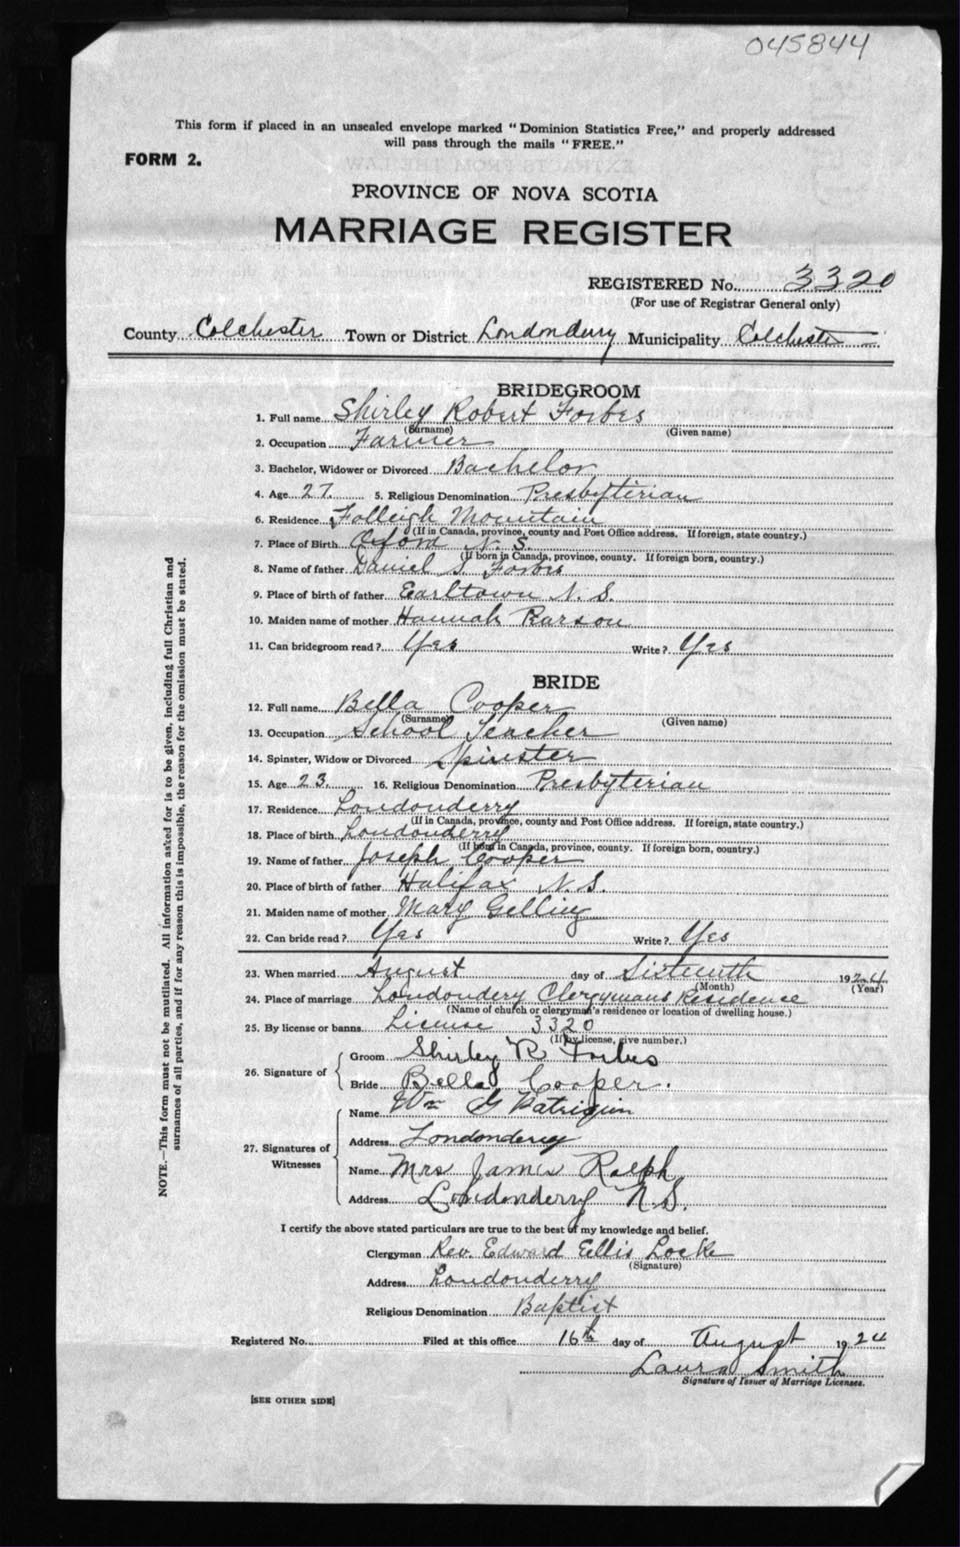 045844
This form if placed in an unsealed envelope marked "Dominion Statistics Free," and properly addressed
will pass through the mails "FREE."
FORM 2.
PROVINCE OF NOVA SCOTIA
MARRIAGE REGISTER
REGISTERED No. 3320
(For use of Registrar General only)
County Colchester Town or District Londonderry Municipality Colchester
BRIDEGROOM
1. Full name Shirley Robert Forbes
(Surname) (Given name)
2. Occupation Farmer
3. Bachelor, Widower or Divorced Bachelor
4. Age 27 5. Religious Denomination Presbyterian
6. Residence Folleigh Mountain
(If in Canada, province, county and Post Office address. If foreign, state country.)
7. Place of Birth Oxford N. S.
(If born in Canada, province, county. If foreign born, country.)
8. Name of father Daniel S. Forbes
9. Place of birth of father Earltown N. S.
10. Maiden name of mother Hannah
11. Can bridegroom read? Yes Write? Yes
BRIDE
12. Full name Bella Cooper
(Surname) (Given name)
13. Occupation School Teacher
14. Spinster, Widow or Divorced Spinster
15. Age 23. 16. Religious Denomination Presbyterian
17. Residence Londonderry
(If in Canada, province, county and Post Office address. If foreign, state country.)
18. Place of birth Londonderry
(If born in Canada, province, county. If foreign born, country.)
19. Name of father Joseph Cooper
20. Place of birth of father Halifax N. S.
21. Maiden name of mother Mary Gelling
22. Can bride read? Yes Write? Yes
23. When married August day of Sixteenth 19
(Month) (Year)
24. Place of marriage Londondery Clergymans Residence
(Name of church or clergyman's residence or location of dwelling house.)
25. By license or banns License 3320
(If by license, give number.)
26. Signature of
Groom Shirley R Forbes
Bride Bella Cooper.
27. Signatures of Witnesses
Name Wm G Patriquin
Address Londonderry
Name Mrs James Ralph
Address Londonderry N.S.
I certify the above stated particulars are true to the best of my knowledge and belief.
Clergyman Rev. Edward Ellis Locke
(Signature)
Address Londonderry
Religious Denomination Baptist
Registered No. Filed at this office 16th day of August 1924
Laura Smith
Signature of Issuer of Marriage Licenses.
[SEE OTHER SIDE]
NOTE.—This form must not be mutilated. All information asked for is to be given, including full Christian and
surnames of all parties, and if for any reason this is impossible, the reason for the omission must be stated.